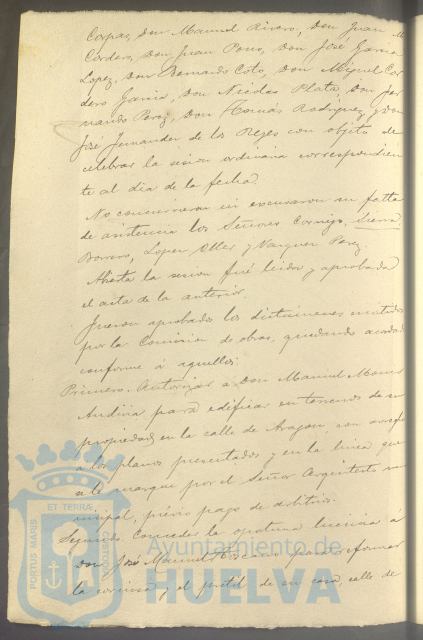 Corpas, Don Manuel Rivero, Don Juan M
Cordero, Don Juan Pons, Don José Garcia
Lopez, Don Bernardo Coto, Don Miguel Cor
dero Garcia, Don Nicolas Plata, Don Fer
nando Perez, Don Tomás Rodriguez y Don
José Fernandez de los Reyes con objeto de
celebrar la sesion ordinaria correspondien
te al dia de la fecha.
No concurrieron ni excusaron su falta
de asistencia los Señores Cornejo, Sierra
Borrero, Lopez y Vazquez Perez.
Abierta la sesion fué leida y aprobada
el acta de la anterior.
Fueron aprobados los dictámenes emitidos
por la Comision de obras, quedando acordado
conforme á aquellos:
Primero. Autorizar a Don Manuel
para edificar en terrenos de su
propiedad en la calle de Aragon, con arreglo
a los planos presentados y en la linea que
se le marque por el Señor Arquitecto mu
nicipal, prévio pago de arbitrios.
Segundo. Conceder la oportuna licencia á
Don José Manuel para reformar
la cornisa y el pretil de su casa, calle de
ET TERRÆ
PORTUS MARIS
CUSTODIA
Ayuntamiento de
HUELVA